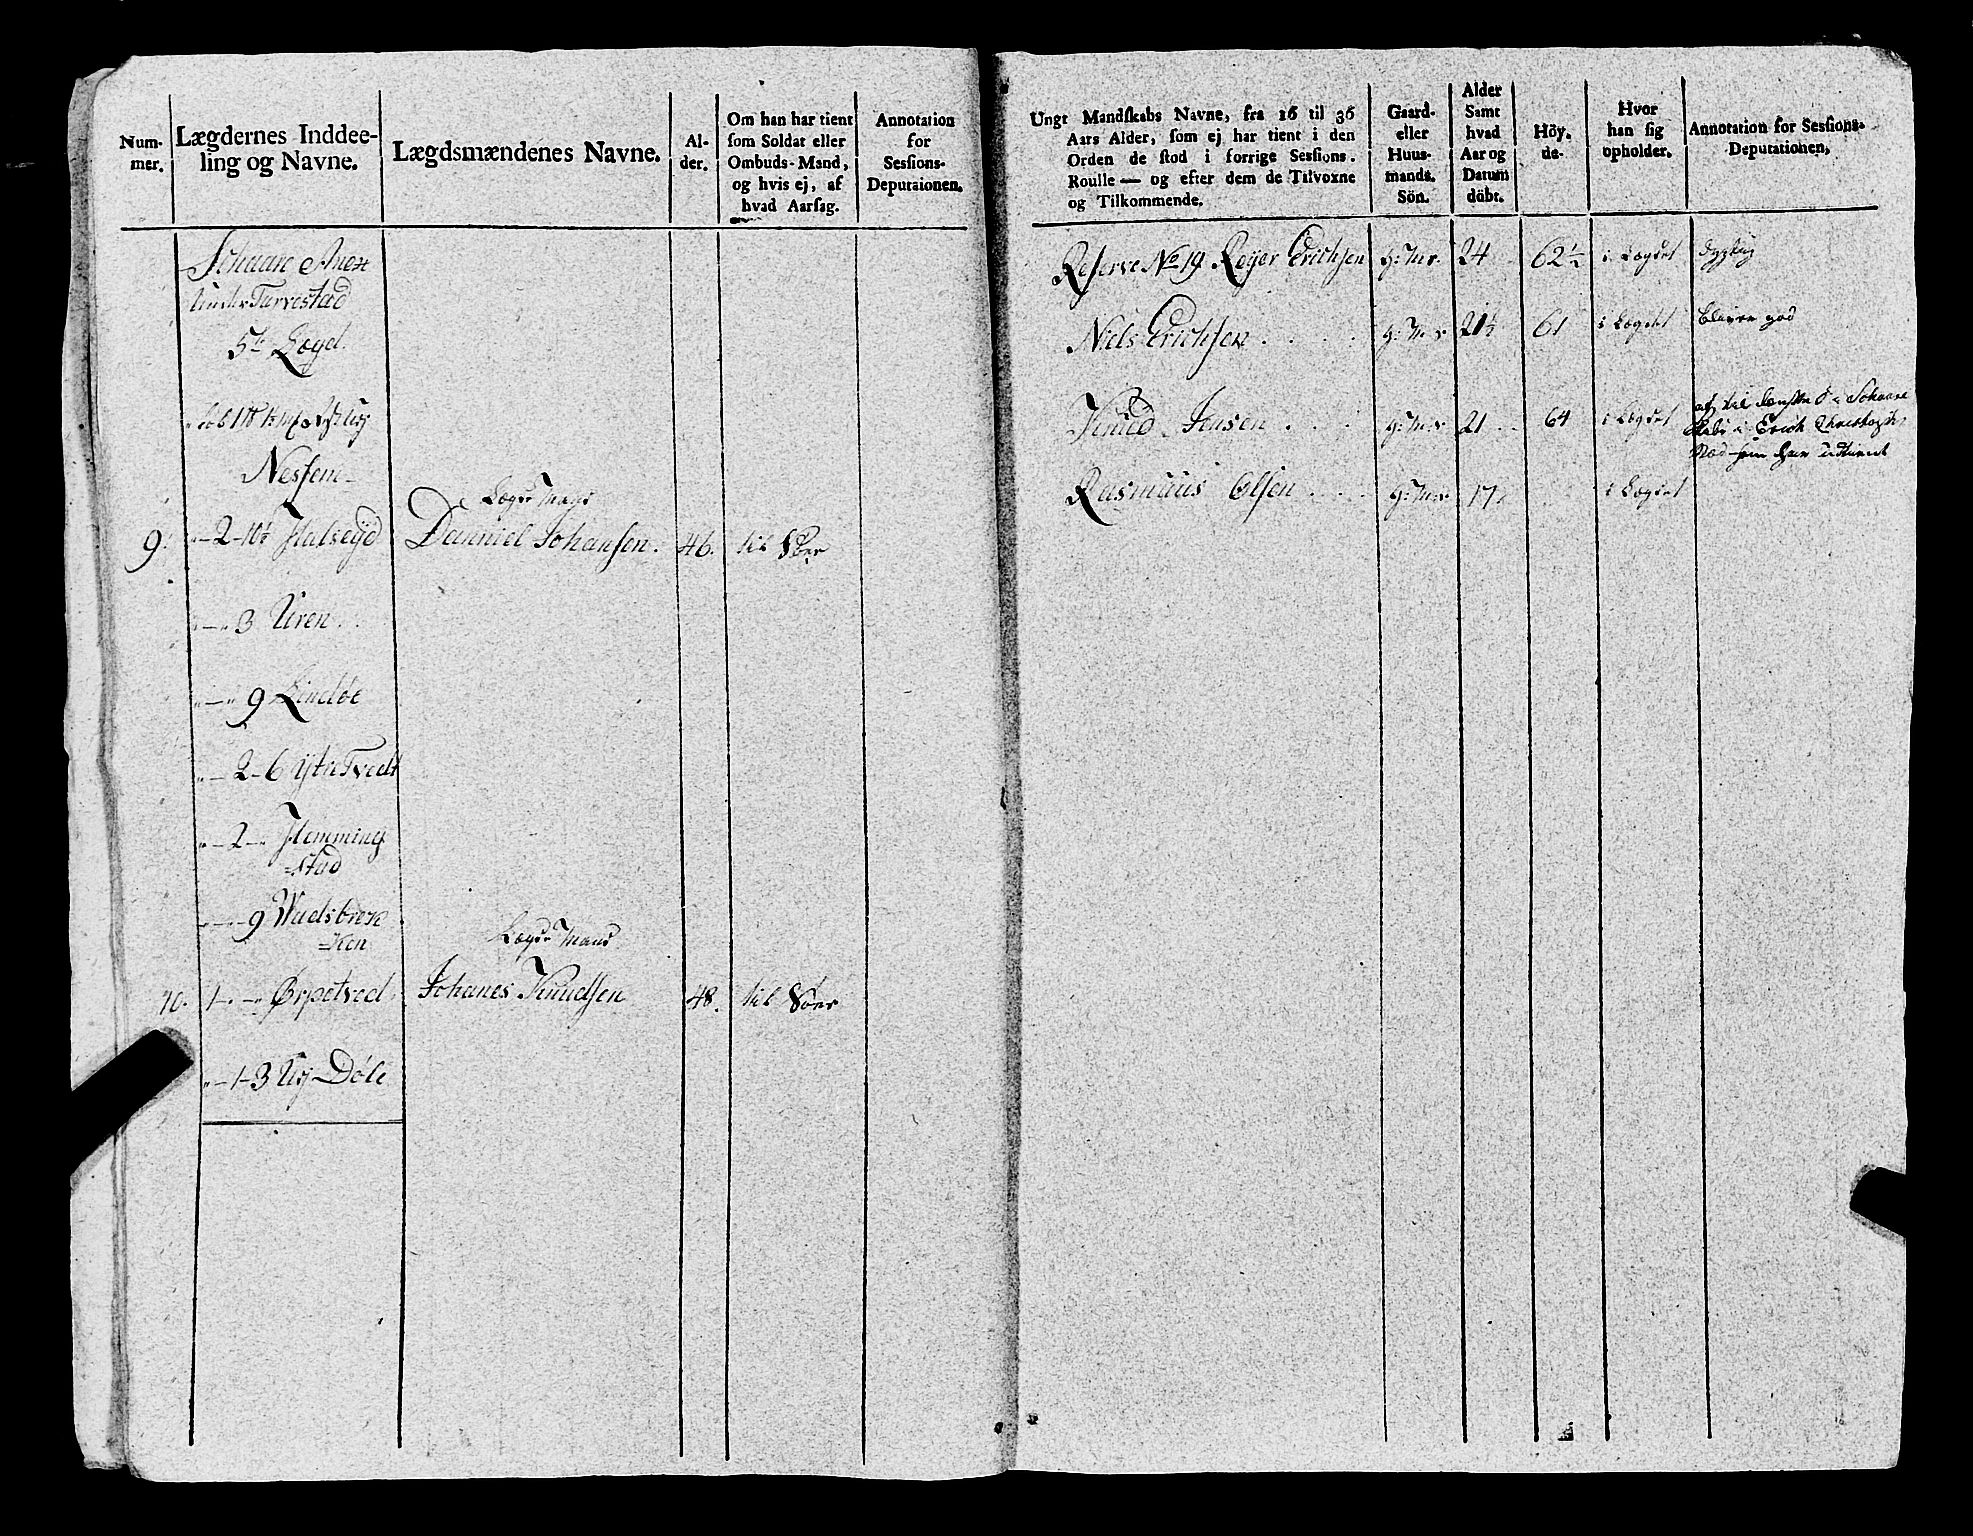 Num-
mer.
Lægdernes Inddee-
ling og Navne.
Lægdsmændenes Navne.
Al-
der.
Om han har tient
som Soldat eller
Ombuds-Mand,
og hvis ej, af
hvad Aarsag.
Annotation
for
Sessions-
Deputaionen.
Under Tarvestad
5te Lægd.
Nessem
Lægds Mand
9. 2-10½ Halseijd Danniel Johansen. 46. til Søes
3 Uren
9 Lindöe
2-6 Ytre Tvedt
2 Hemming
stad
9 Wadsbrek
ken
Lægds Mand
10. 1 Ørpetved Johanes Knudsen 48. til Søes
1-3 Döle
Ungt Mandskabs Navne, fra 16 til 36
Aars Alder, som ej har tient i den
Orden de stod i forrige Sessions-
Roulle — og efter dem de Tilvoxne
og Tilkommende.
Gaard-
eller
Huus-
mands.
Sön.
Alder
Samt
hvad
Aar og
Datum
döbt.
Höy-
de.
Hvor
han sig
opholder.
Annotation for Sessions-
Deputationen.
Reserve No 19 Reijer Erichsen 24 62½ i Lægdet dygtig
Niels Erichsen 21½ 61 i Lægdet bliver god
Knud Jensen 21 64 i Lægdet
Erich
som har udtient
Rasmuus Olsen 17 i Lægdet